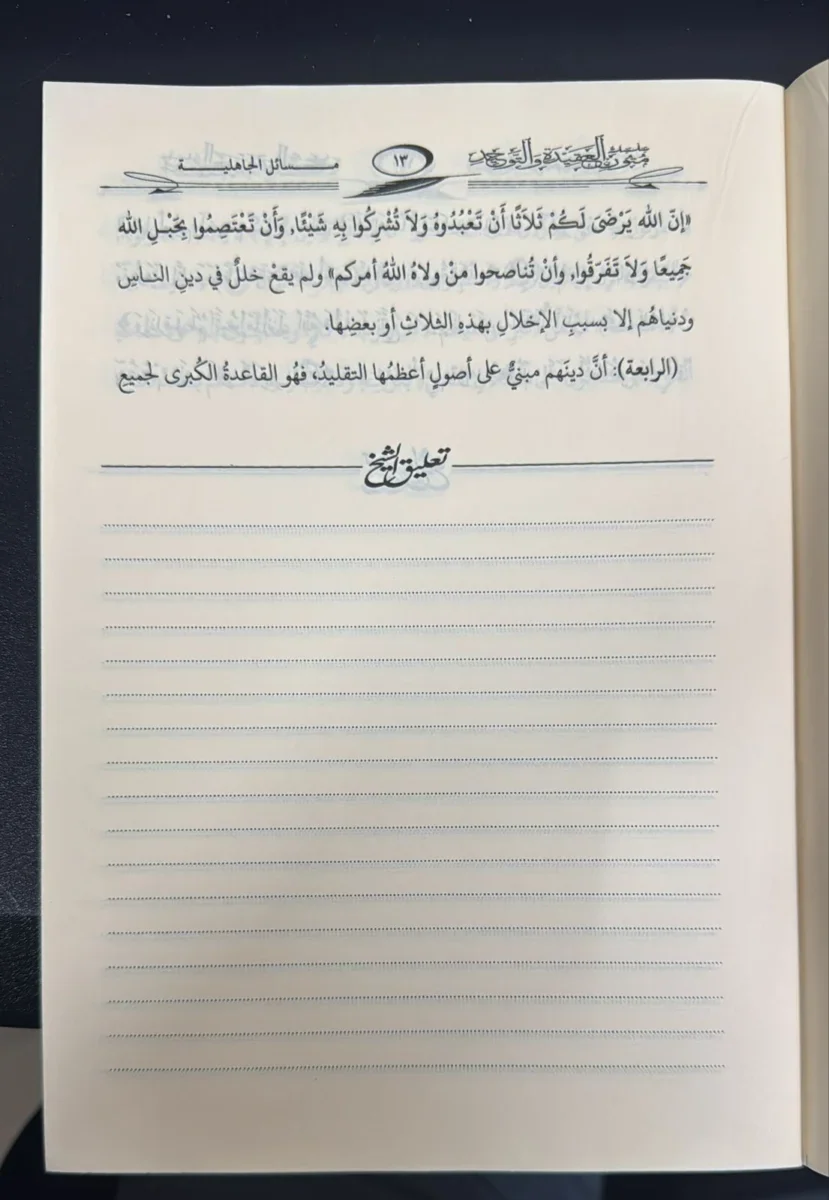 سلسلة متون العقيدة والتوحيد ١٣ مسائل الجاهلية
«إنّ الله يَرْضَىَ لَكُمْ ثَلَاثًا أَنْ تَعْبُدُوهُ وَلاَ تُشْرِكُوا بِهِ شَيْئًا، وَأَنْ تَعْتَصِمُوا بِحَبْلِ الله
جَمِيعًا وَلاَ تَفَرّقُوا، وأنْ تُناصحوا منْ ولاهُ اللهُ أمركم» ولم يقعْ خللٌ في دينِ الناسِ
ودنياهُم إلا بسببِ الإخلالِ بهذهِ الثلاثِ أو بعضِها.
(الرابعة): أنَّ دينَهم مبنيٌّ على أصولٍ أعظمُها التقليدُ، فهُو القاعدةُ الكُبرى لجميعِ
تعليق الشيخ